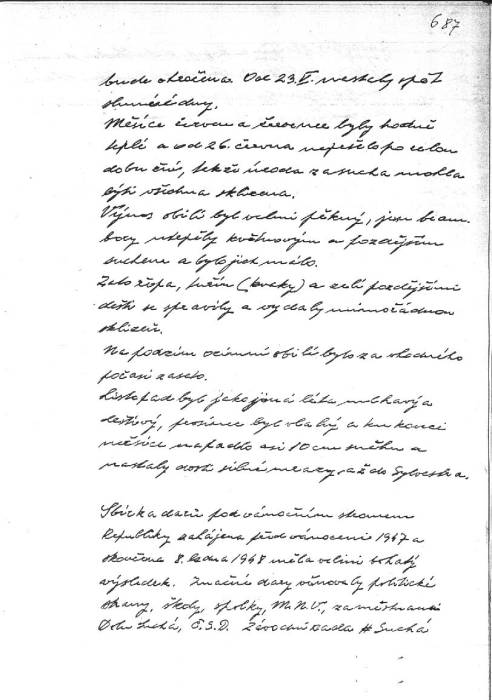 687
bude otočena. Od 23.V. nastaly opět
slunečné dny.
Měsíce červen a červenec byly hodně
teplé a od 26. června nepršelo po celou
dobu žní, takže úroda za sucha mohla
býti všechna sklizena.
Výnos obilí byl velmi pěkný, jen bram-
bory utrpěly květnovým a pozdějším
suchem a bylo jich málo.
Zato řepa, tuřín (kvaky) a zelí pozdějšími
dešti se spravily a vydaly mimořádnou
sklizeň.
Na podzim ozimní obilí bylo za vhodného
počasí zaseto.
Listopad byl jako jiná léta mlhavý a
deštivý, prosinec byl vlahý a ku konci
měsíce napadlo asi 10 cm sněhu a
nastaly dosti silné mrazy, až do Sylvestra.
Sbírka darů pod vánočním stromem
Republiky zahájena před vánocemi 1947 a
skončena 8. ledna 1948 měla velmi bohatý
výsledek. Značné dary věnovaly politické
strany, školy, spolky, M.N.V., zaměstnanci
Doln. Suchá, Č.S.D. Závodní rada # Suchá